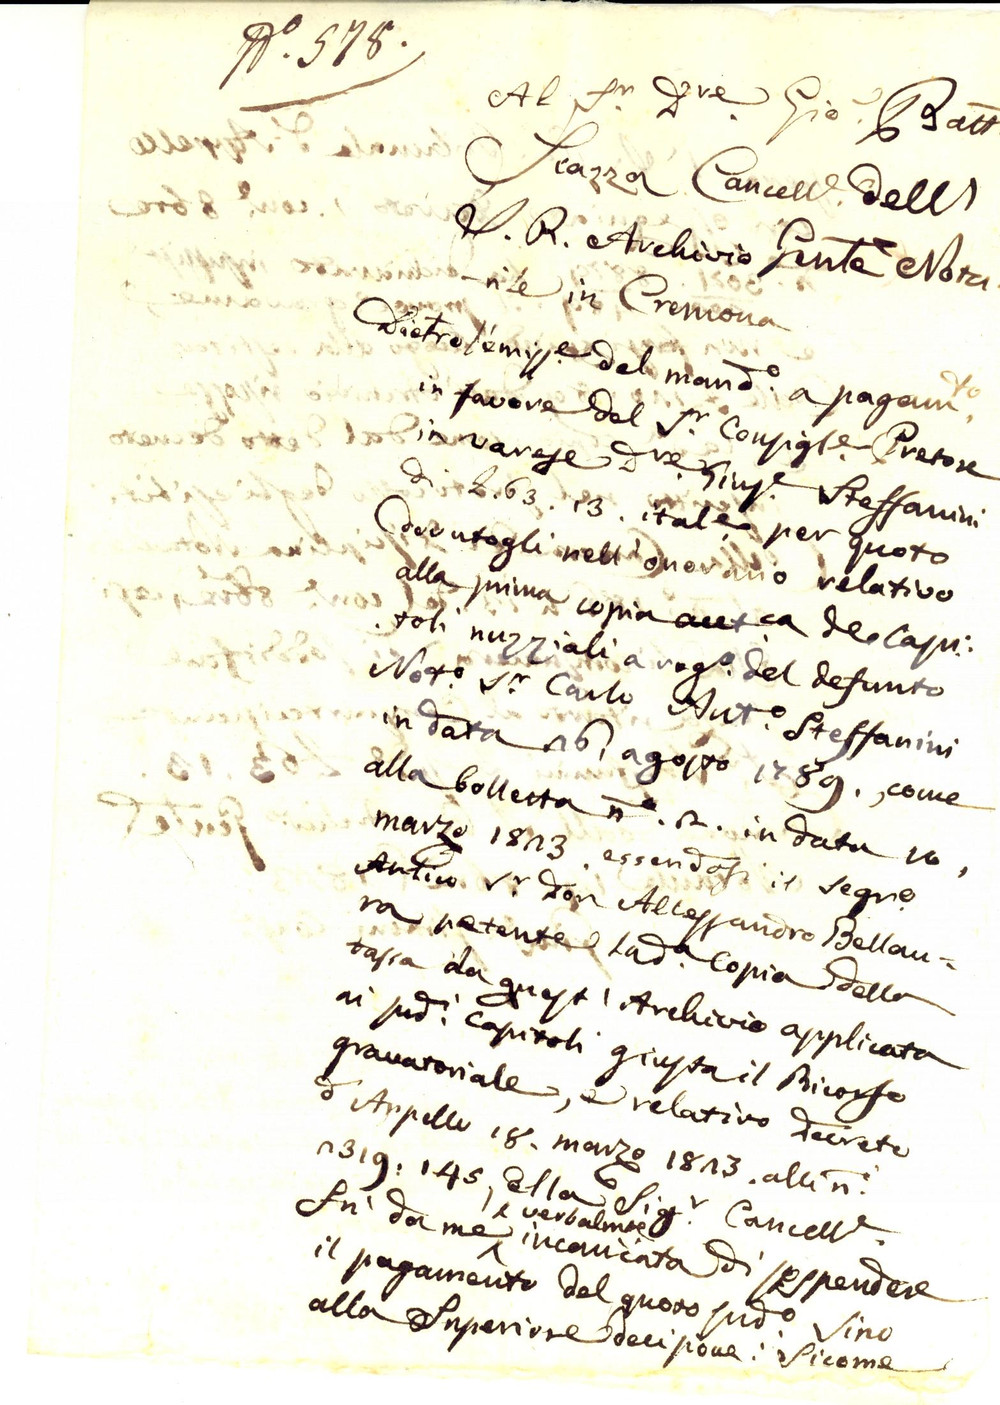 N.º 578.
Al Sr. Dre. Gio. Batt
Piazza Cancell.e dell'
I. R. Archivio Gen.le Nota-
-rile in Cremona
Dietro l'emiss.e del mand.o a pagam.to
in favore del Sr. Consigl.e Pretore
in Varese Dre. Gius.e Steffanini
di L. 63. 13. ital.e per quoto
dovutogli nell'onorario relativo
alla prima copia autca de Capi:
toli nuzziali a rog.o del defunto
Not.o Sr. Carlo Ant.o Steffanini
in data 16 agosto 1789., come
alla bolletta n.o 2. in data 10,
marzo 1823. essendosi il segre
Antico Sr. Don Alessandro Bellan-
ra petente la d.a Copia della
tassa da quest'Archivio applicata
ai pd.i Capitoli giusta il Ricorso
gravatoriale, e relativo decreto
d'Appello 18. marzo 1823. alli n.i
2319: 145, Ella Sig.r Cancell.e
fu da me verbalmte incaricata di sospendere
il pagamento del quoto pd.o sino
alla Superiore decisione: Sicome